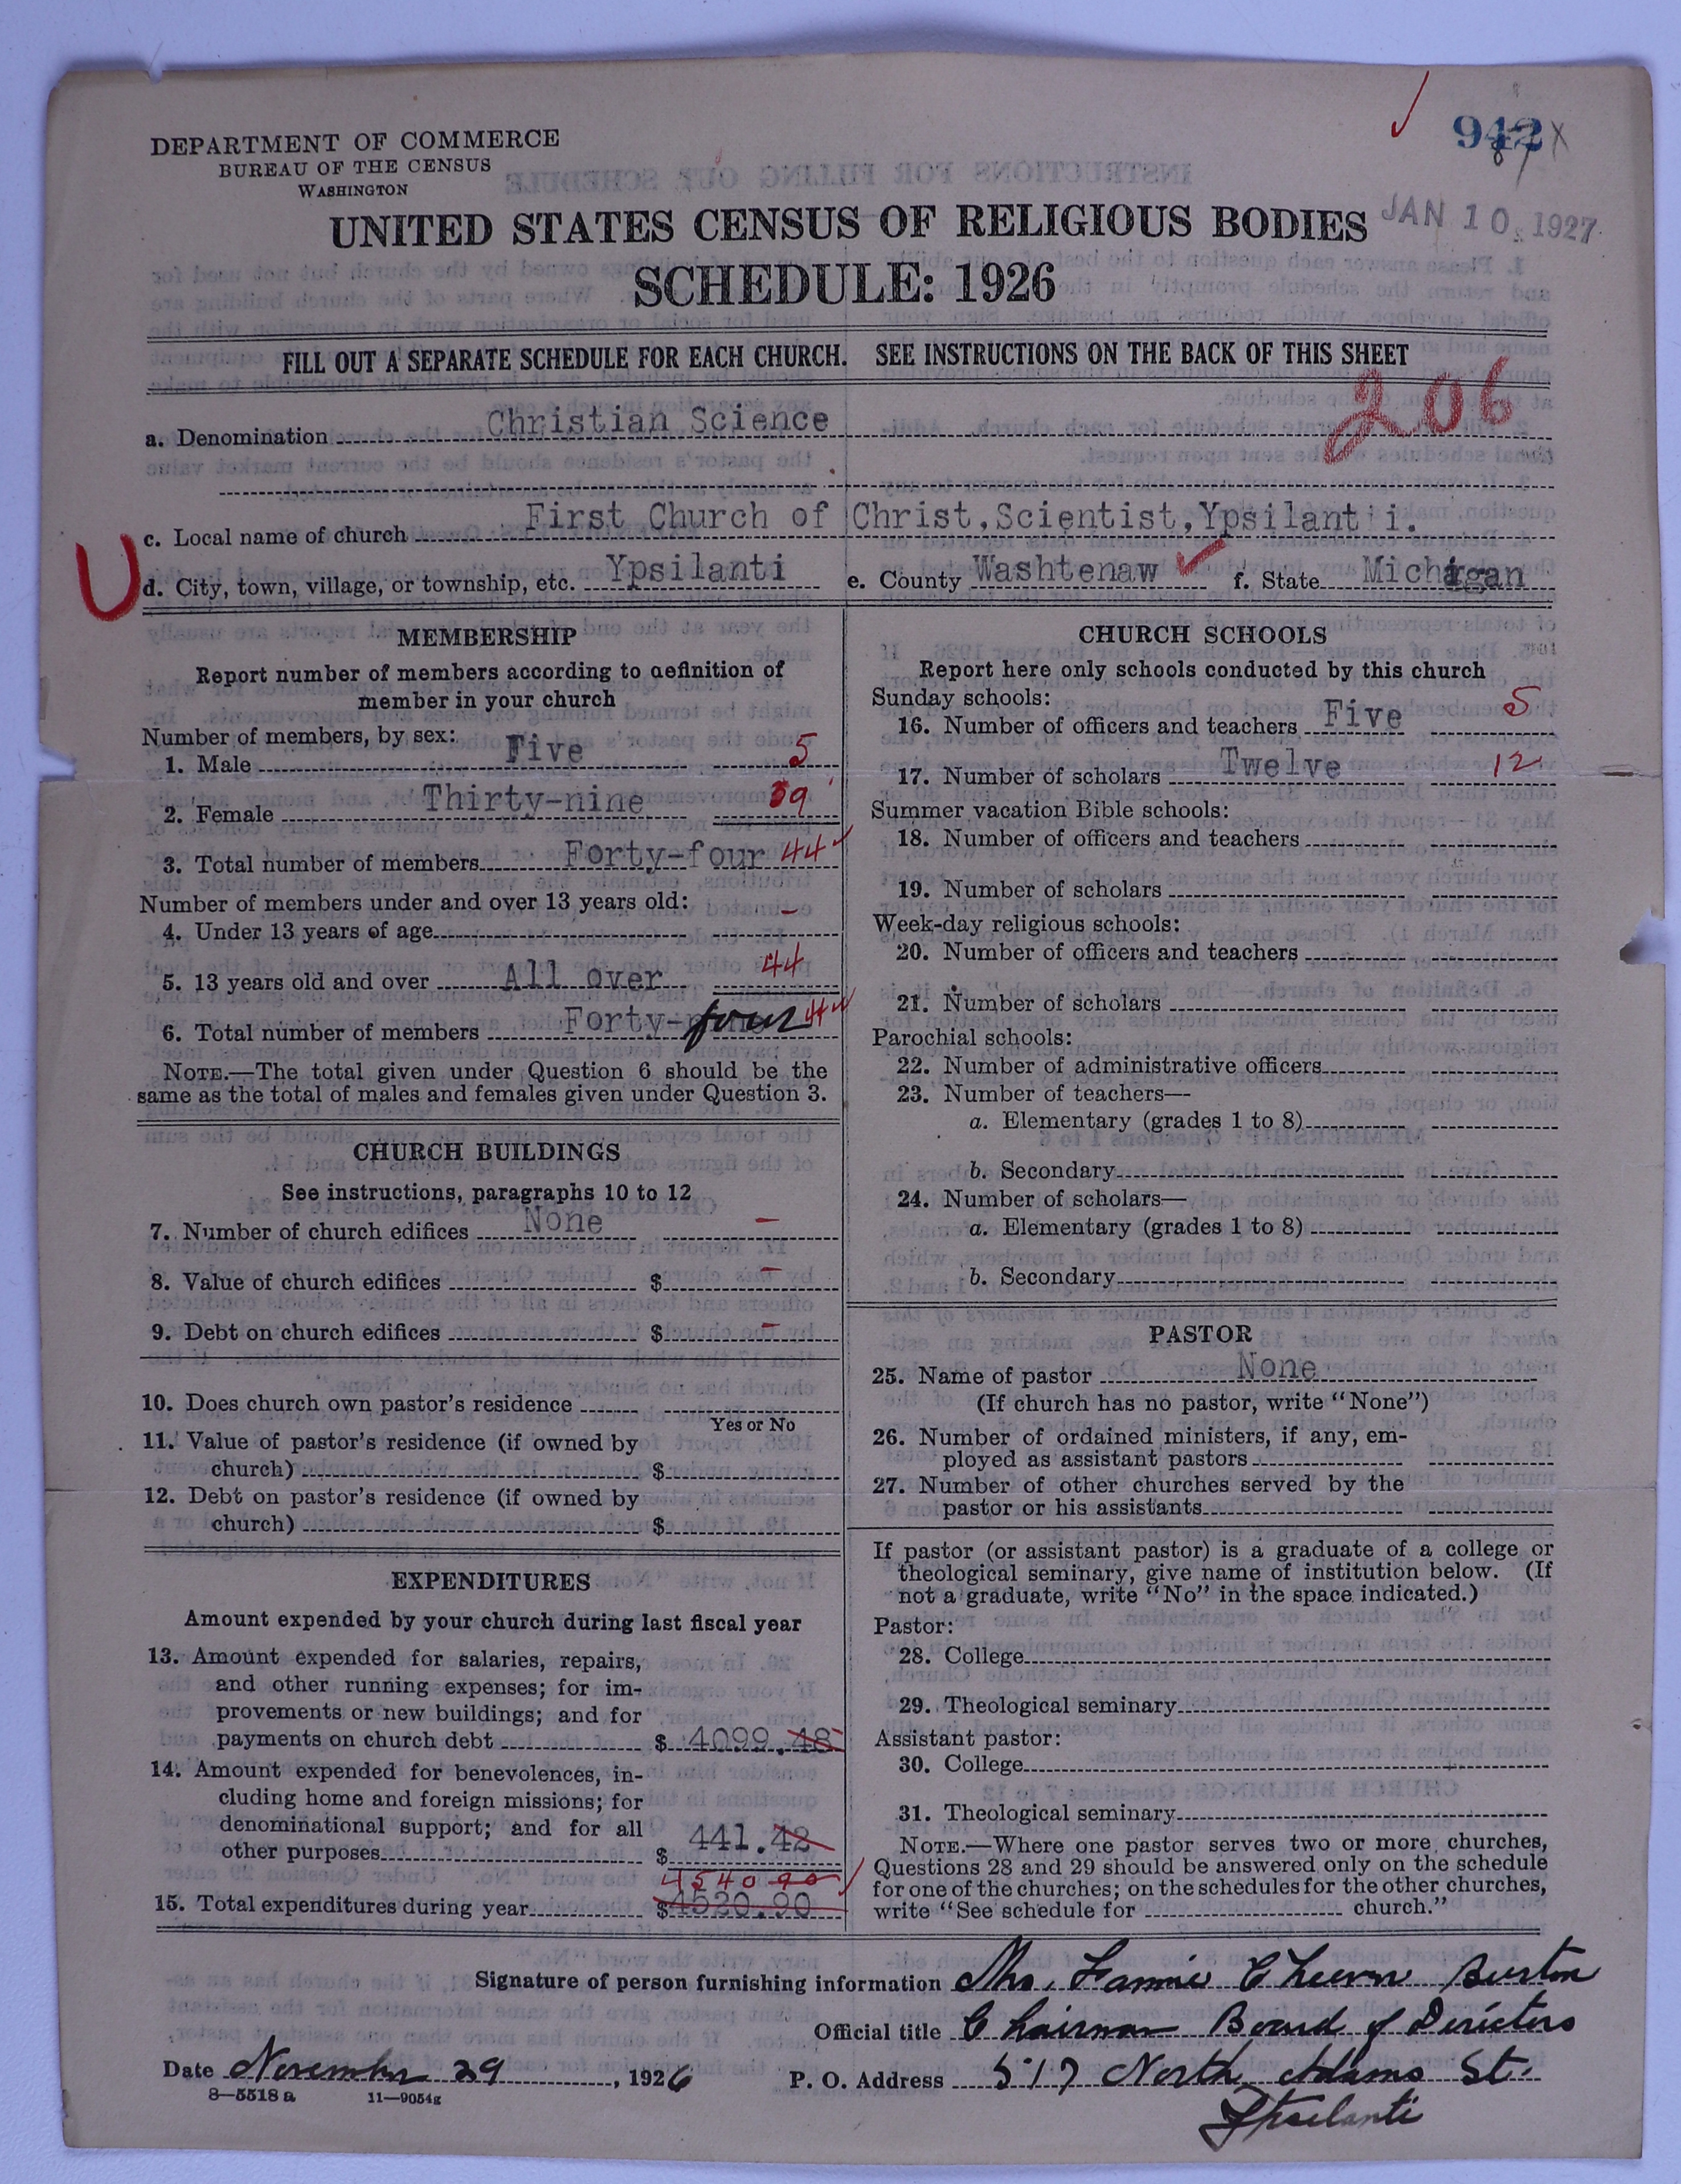 DEPARTMENT OF COMMERCE
BUREAU OF THE CENSUS
WASHINGTON
942
JAN 10 1927
UNITED STATES CENSUS OF RELIGIOUS BODIES
SCHEDULE: 1926
FILL OUT A SEPARATE SCHEDULE FOR EACH CHURCH. SEE INSTRUCTIONS ON THE BACK OF THIS SHEET
206
a. Denomination Christian Science
c. Local name of church First Church of Christ, Scientist, Ypsilanti.
U
d. City, town, village, or township, etc. Ypsilanti e. County Washtenaw f. State Michigan
MEMBERSHIP
Report number of members according to definition of
member in your church
Number of members, by sex:
1. Male Five 5
2. Female Thirty-nine 39
3. Total number of members Forty-four 44
Number of members under and over 13 years old:
4. Under 13 years of age –
5. 13 years old and over All over 44
6. Total number of members Forty-four 44
NOTE.—The total given under Question 6 should be the
same as the total of males and females given under Question 3.
CHURCH BUILDINGS
See instructions, paragraphs 10 to 12
7. Number of church edifices None –
8. Value of church edifices $ –
9. Debt on church edifices $ –
10. Does church own pastor's residence
Yes or No
11. Value of pastor's residence (if owned by
church) $
12. Debt on pastor's residence (if owned by
church) $
EXPENDITURES
Amount expended by your church during last fiscal year
13. Amount expended for salaries, repairs,
and other running expenses; for im-
provements or new buildings; and for
payments on church debt $ 4099.48
14. Amount expended for benevolences, in-
cluding home and foreign missions; for
denominational support; and for all
other purposes $ 441.42
4540 90
15. Total expenditures during year $4520.90
CHURCH SCHOOLS
Report here only schools conducted by this church
Sunday schools:
16. Number of officers and teachers Five 5
17. Number of scholars Twelve 12
Summer vacation Bible schools:
18. Number of officers and teachers
19. Number of scholars
Week-day religious schools:
20. Number of officers and teachers
21. Number of scholars
Parochial schools:
22. Number of administrative officers
23. Number of teachers—
a. Elementary (grades 1 to 8)
b. Secondary
24. Number of scholars—
a. Elementary (grades 1 to 8)
b. Secondary
PASTOR
25. Name of pastor None
(If church has no pastor, write "None")
26. Number of ordained ministers, if any, em-
ployed as assistant pastors
27. Number of other churches served by the
pastor or his assistants
If pastor (or assistant pastor) is a graduate of a college or
theological seminary, give name of institution below. (If
not a graduate, write "No" in the space indicated.)
Pastor:
28. College
29. Theological seminary
Assistant pastor:
30. College
31. Theological seminary
NOTE.—Where one pastor serves two or more churches,
Questions 28 and 29 should be answered only on the schedule
for one of the churches; on the schedules for the other churches,
write "See schedule for church."
Signature of person furnishing information Mrs. Fannie Cheever Burton
Official title Chairman Board of Directors
Date November 29, 1926 P. O. Address 517 North Adams St.
Ypsilanti
8—5518 a 11—9054g